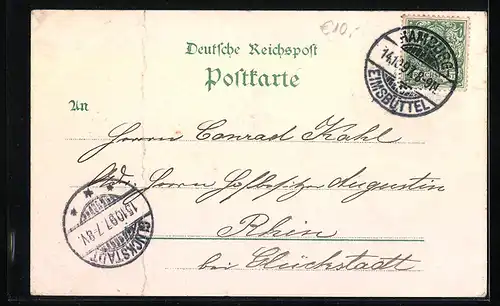 €10,-
Deutsche Reichspost
Postkarte
HAMBURG
14.10.97. 8-9N.
EIMSBÜTTEL
An
Herrn Conrad Kahl
Adr. Herrn Hofbesitzer Augustin
Rhin
bei Glückstadt
15.10.97. 7-8V.
GLÜCKSTADT